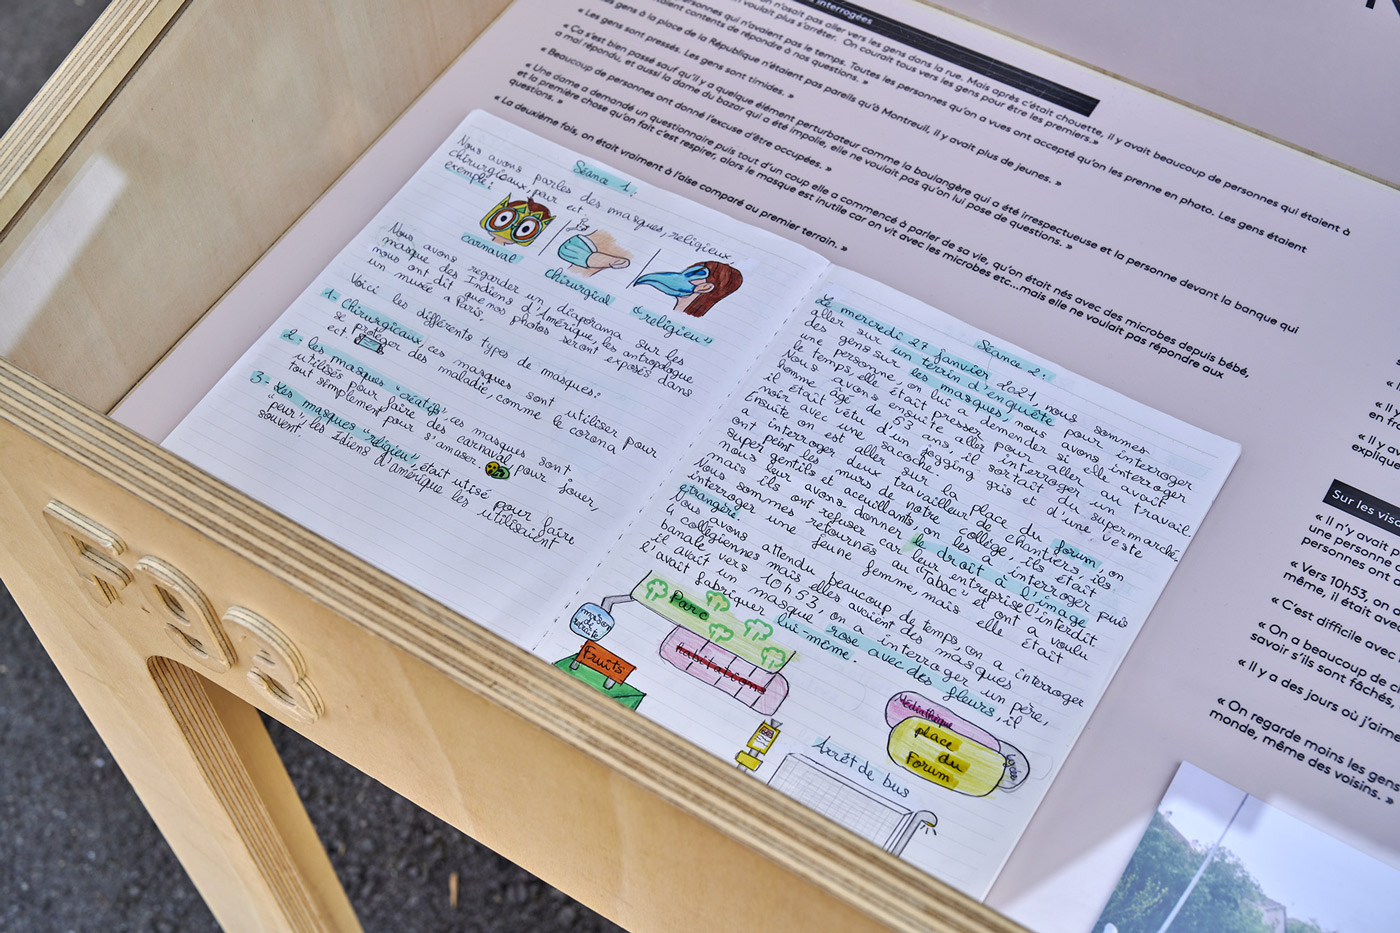 s interrogées
n n'osait pas aller vers les gens dans la rue. Mais après c'était chouette, il y avait beaucoup de personnes qui étaient à
voulait plus s'arrêter. On courait tous vers les gens pour être les premiers.»
personnes qui n'avaient pas le temps. Toutes les personnes qu'on a vues ont accepté qu'on les prenne en photo. Les gens étaient
contents de répondre à nos questions. »
« Les gens à la place de la République n'étaient pas pareils qu'à Montreuil, il y avait plus de jeunes. »
Les gens sont pressés. Les gens sont timides. »
« Ça s'est bien passé sauf qu'il y a quelque élément perturbateur comme la boulangère qui a été irrespectueuse et la personne devant la banque qui
a mal répondu, et aussi la dame du bazar qui a été impolie, elle ne voulait pas qu'on lui pose de questions. »
« Beaucoup de personnes ont donné l'excuse d'être occupées. »
« Une dame a demandé un questionnaire puis tout d'un coup elle a commencé à parler de sa vie, qu'on était nés avec des microbes depuis bébé,
et la première chose qu'on fait c'est respirer, alors le masque est inutile car on vit avec les microbes etc...mais elle ne voulait pas répondre aux
questions. »
« La deuxième fois, on était vraiment à l'aise comparé au premier terrain. »
Séance 1:
Nous avons parlés des masques, religieux,
chirurgicaux, par ect
exemple:
carnaval
chirurgical
« religieu »
Nous avons regarder un diaporama sur les
masque des Indiens d'Amérique, les antropologue
nous ont dit que nos photos seront exposés dans
un musée a Paris.
Voici les différents types de masques:
1- Chirurgicaux, ces masques sont utiliser pour
se protéger des maladie, comme le corona
est
2- les masques "créatifs", ces masques sont
utilisés pour faire des carnaval, pour jouer,
tout simplement pour s'amuser.
3- Les masques "religieu", était utilisé pour faire
"peur", les Idiens d'amérique les utilisaient
souvent.
Séance 2:
Le mercredi 27 Janvier 2021, nous sommes
aller sur un terrin d'enquête pour interroger
des gens sur les masques, nous avons interroger
une personne, on lui a demander si elle avait
le temps, elle était presser pour aller au travail.
Nous avons ensuite aller interroger un
homme âgé de 53 ans, il sortait du supermarché
il était vêtu d'un jogging gris et d'une veste
noir avec une sacoche.
Ensuite on est aller sur la place du forum, on
a interroger deux travailleur de chantiers, ils
ont peint les murs de notre collège, ils était
super gentils et aceuillants, on les a interroger puis
nous leur avons donner le droit à l'image
mais ils ont refuser car leur entreprise l'interdit.
Nous sommes retournés au "Tabac" et on a voulu
interroger une jeune femme, mais elle était
étrangère.
Nous avons attendu beaucoup de temps, on a interroger
4 collégiennes mais elles avaient des masques
banale vers 10h53, on a interroger un père,
il avait un masque rose avec des fleurs, il
l'avait fabriquer lui-même.
Parc
maison
de
retraite
Fruits
habitations
Médiathèque
place
du
Forum
Arrêt de bus
Sur les visa
« Il n'y avait p
une personne
personnes ont
« Vers 10h53, on a
même, il était avec
« C'est difficile avec
« On a beaucoup de
savoir s'ils sont fâchés,
« Il y a des jours où j'aime
« On regarde moins les gens
monde, même des voisins. »
« Il
en fr
« Il y av
explique